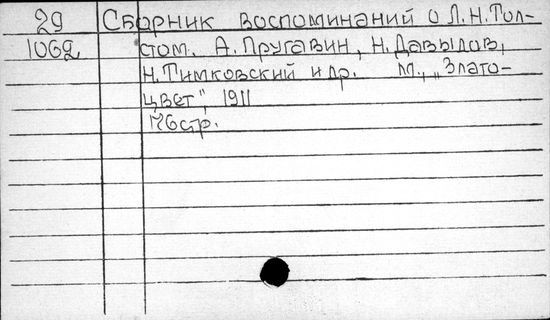 29 Сборник воспоминаний о Л.Н.Тол-
1062 стом. А.Пругавин, Н.Давыдов,
Н.Тимковский и др. М., „Злато-
цвет", 1911
176стр.